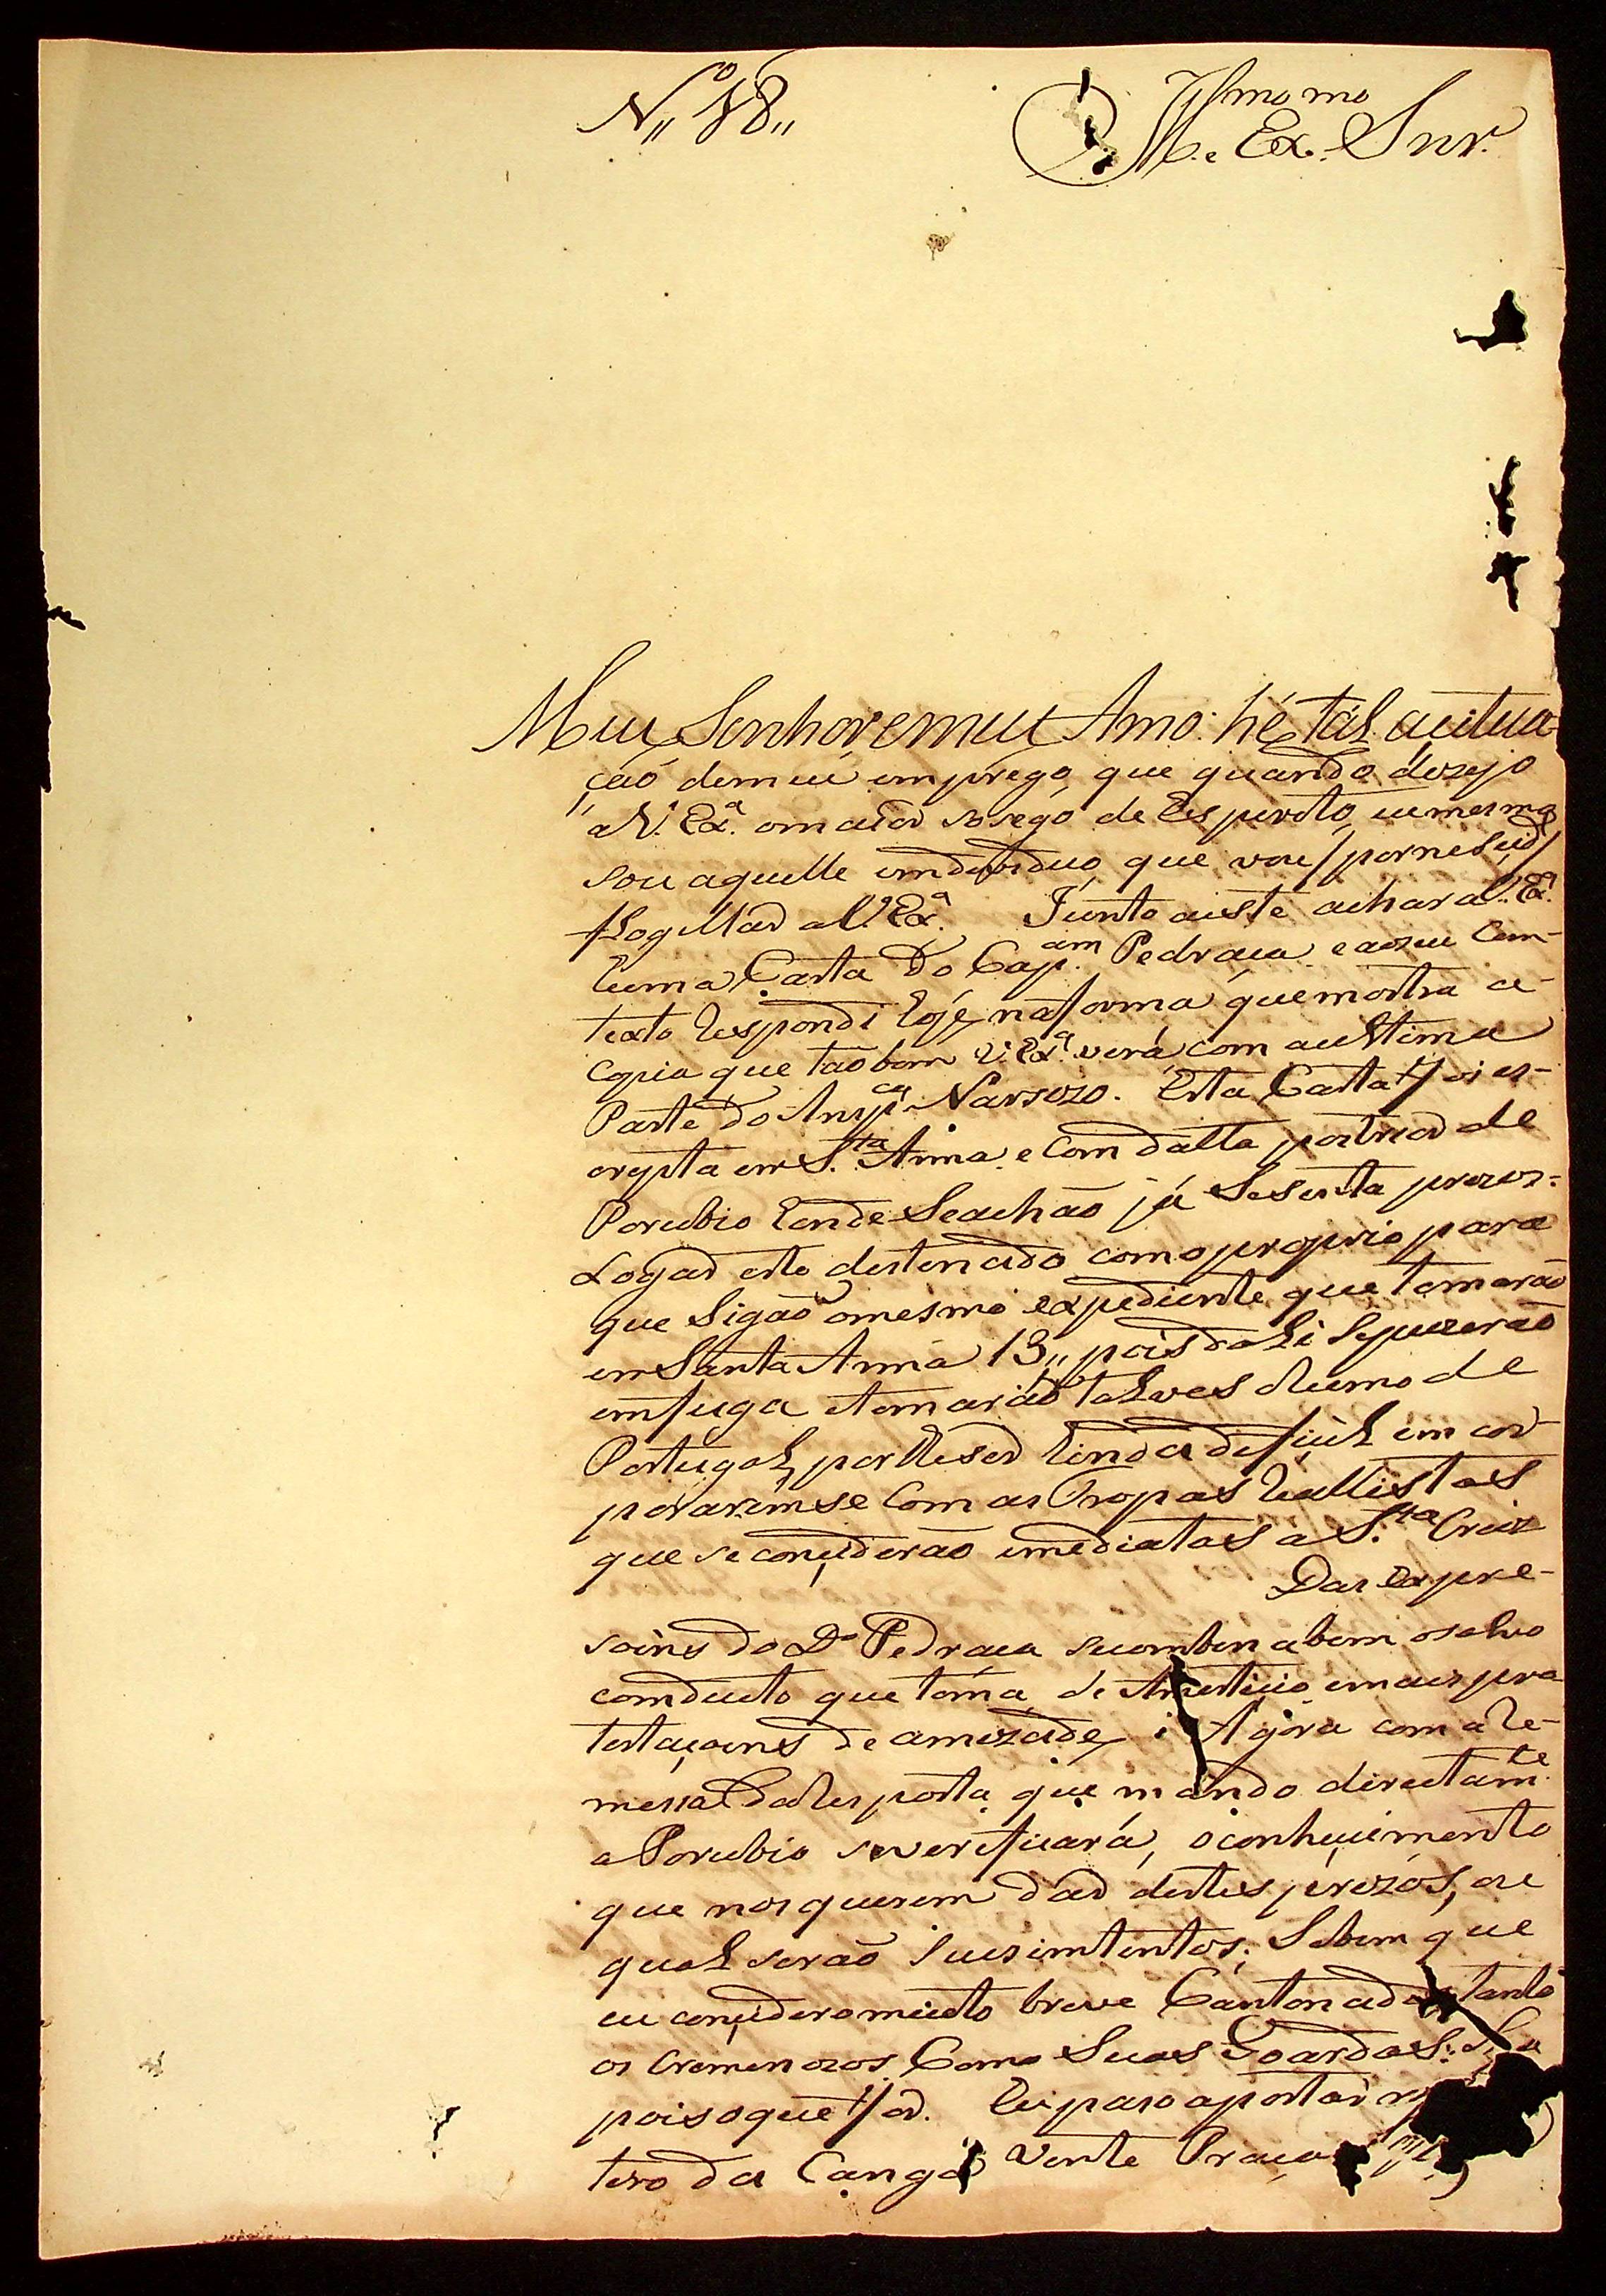 N,, 48,,
Ill.mo e Ex.mo Snr.
Meu Senhor e meu Amo: hé tál a citua-
ção demeu emprego, que quando dezejo
a V. Ex.ª omaior sosego de Espirito, eu mesmo
sou aquelle endeviduo, que vou
a V. Ex.ª Junto a este achara V. Ex.ª
huma Carta do Cap.am Pedraça e aoseu Con-
texto Respondi hoje, na forma que mostra a
Copia que taobem V. Ex.ª verá com a ultima
Parte do Ansp.ca Narsozo. Esta Carta foi es-
cripta em S.ta Anna, e Com datta posterior de
Porubio honde Seachão já Sesenta prezos:
Logar este destenado como proprio para
que Sigão omesmo expediente que tomarão
em Santa Anna 13,, pois dali Sepuzerão
em fuga e tomarião talves Rumo de
Portugal, por lheser hinda dificil em cor-
porarem se Com as Tropas Reallistas
que se conciderão emediatas a S.ta Cruz
Das expre-
soins do D.º Pedraça secomben abem osalvo
conducto que tóma, de Amesticio emais pro-
testaçoens de amizade, i Agora com a Re-
messa da Resposta que mando directam.te
a Porubio severificará, oconhecimento
que nos querem dar destes prezos, ae
qual serão Seus imtentos; Sebem que
eu concidero muito breve Cantonados tanto
os Cremenozos Como Suas Goardas:
pois oque for. Eu paso apostar
tero da Canga Vente Praças